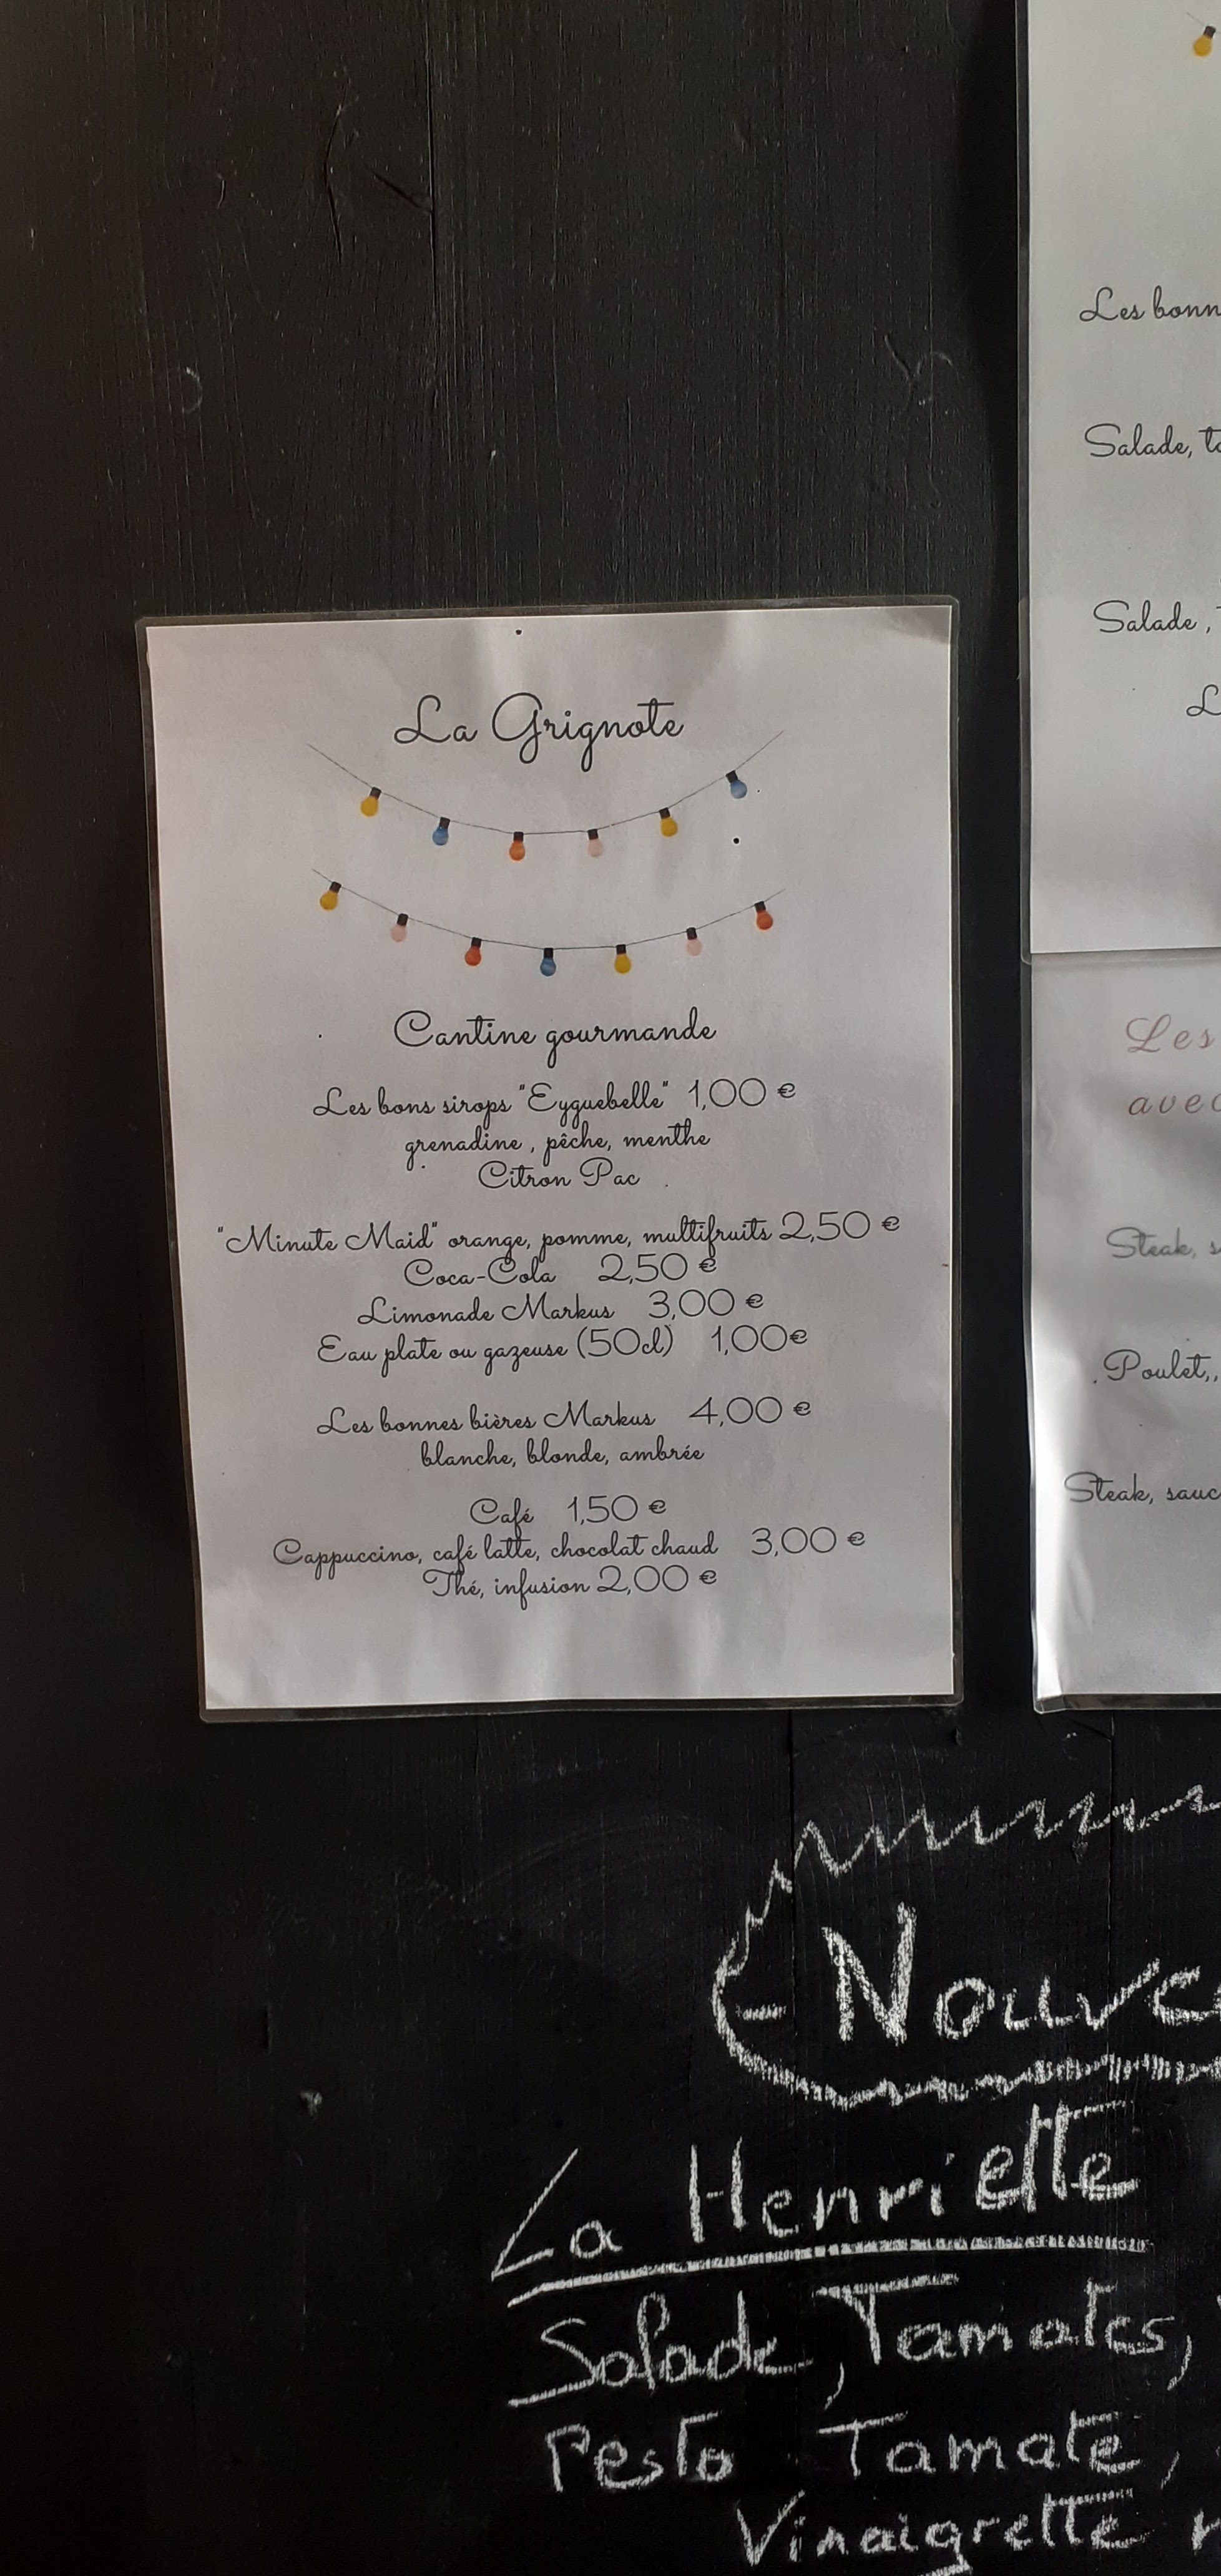 La Grignote
Cantine gourmande
Les bons sirops "Eyguebelle" 1,00 €
grenadine , pêche, menthe
Citron Pac
"Minute Maid" orange, pomme, multifruits 2,50 €
Coca-Cola 2,50 €
Limonade Markus 3,00 €
Eau plate ou gazeuse (50cl) 1,00€
Les bonnes bières Markus 4,00 €
blanche, blonde, ambrée
Café 1,50 €
Cappuccino, café latte, chocolat chaud 3,00 €
Thé, infusion 2,00 €
Les
Salade,
Salade ,
Les
avec
Steak,
Poulet,,
Steak,
La Henriette
Salade, Tomates,
Pesto Tomate,
Vinaigrette